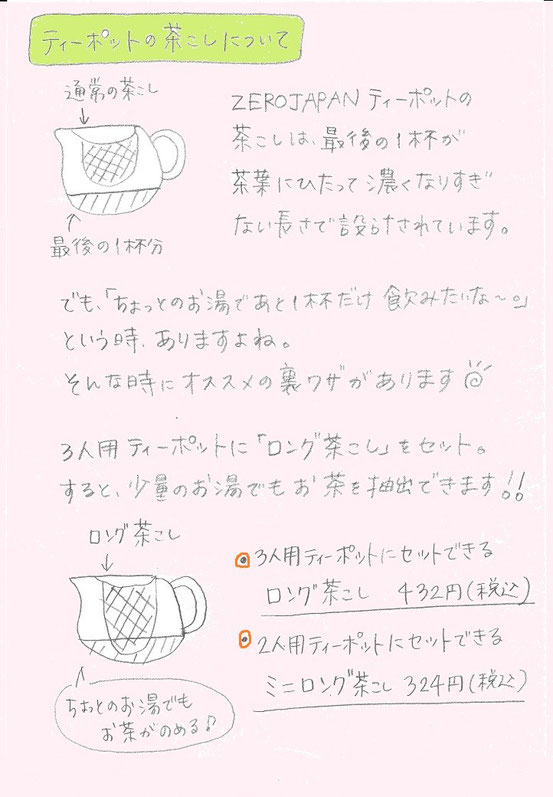 ティーポットの茶こしについて
通常の茶こし
最後の1杯分
ZEROJAPANティーポットの
茶こしは、最後の1杯が
茶葉にひたって濃くなりすぎ
ない長さで設計されています。
でも、「ちょっとのお湯であと1杯だけ飲みたいな〜。」
という時、ありますよね。
そんな時にオススメの裏ワザがあります
3人用ティーポットに「ロング茶こし」をセット。
すると、少量のお湯でもお茶を抽出できます!!
ロング茶こし
ちょっとのお湯でも
お茶がのめる♪
3人用ティーポットにセットできる
ロング茶こし 432円(税込)
2人用ティーポットにセットできる
ミニロング茶こし 324円(税込)